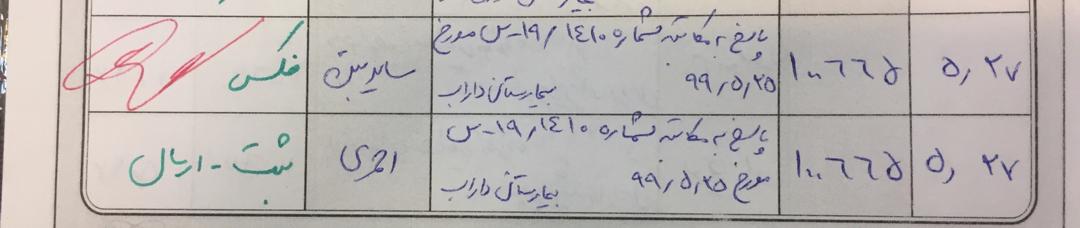 ۵٫۲۷
۱۰۰۶۶۵
پاسخ به مکاتبه شماره ۱۹/۱۴۱۰-س مورخ
۹۹٫۵٫۲۵ بیمارستان داراب
فکس
۵٫۲۷
۱۰۰۶۶۵
پاسخ به مکاتبه شماره ۱۹/۱۴۱۰-س
مورخ ۹۹٫۵٫۲۵ بیمارستان داراب
احمدی
ثبت - ارسال